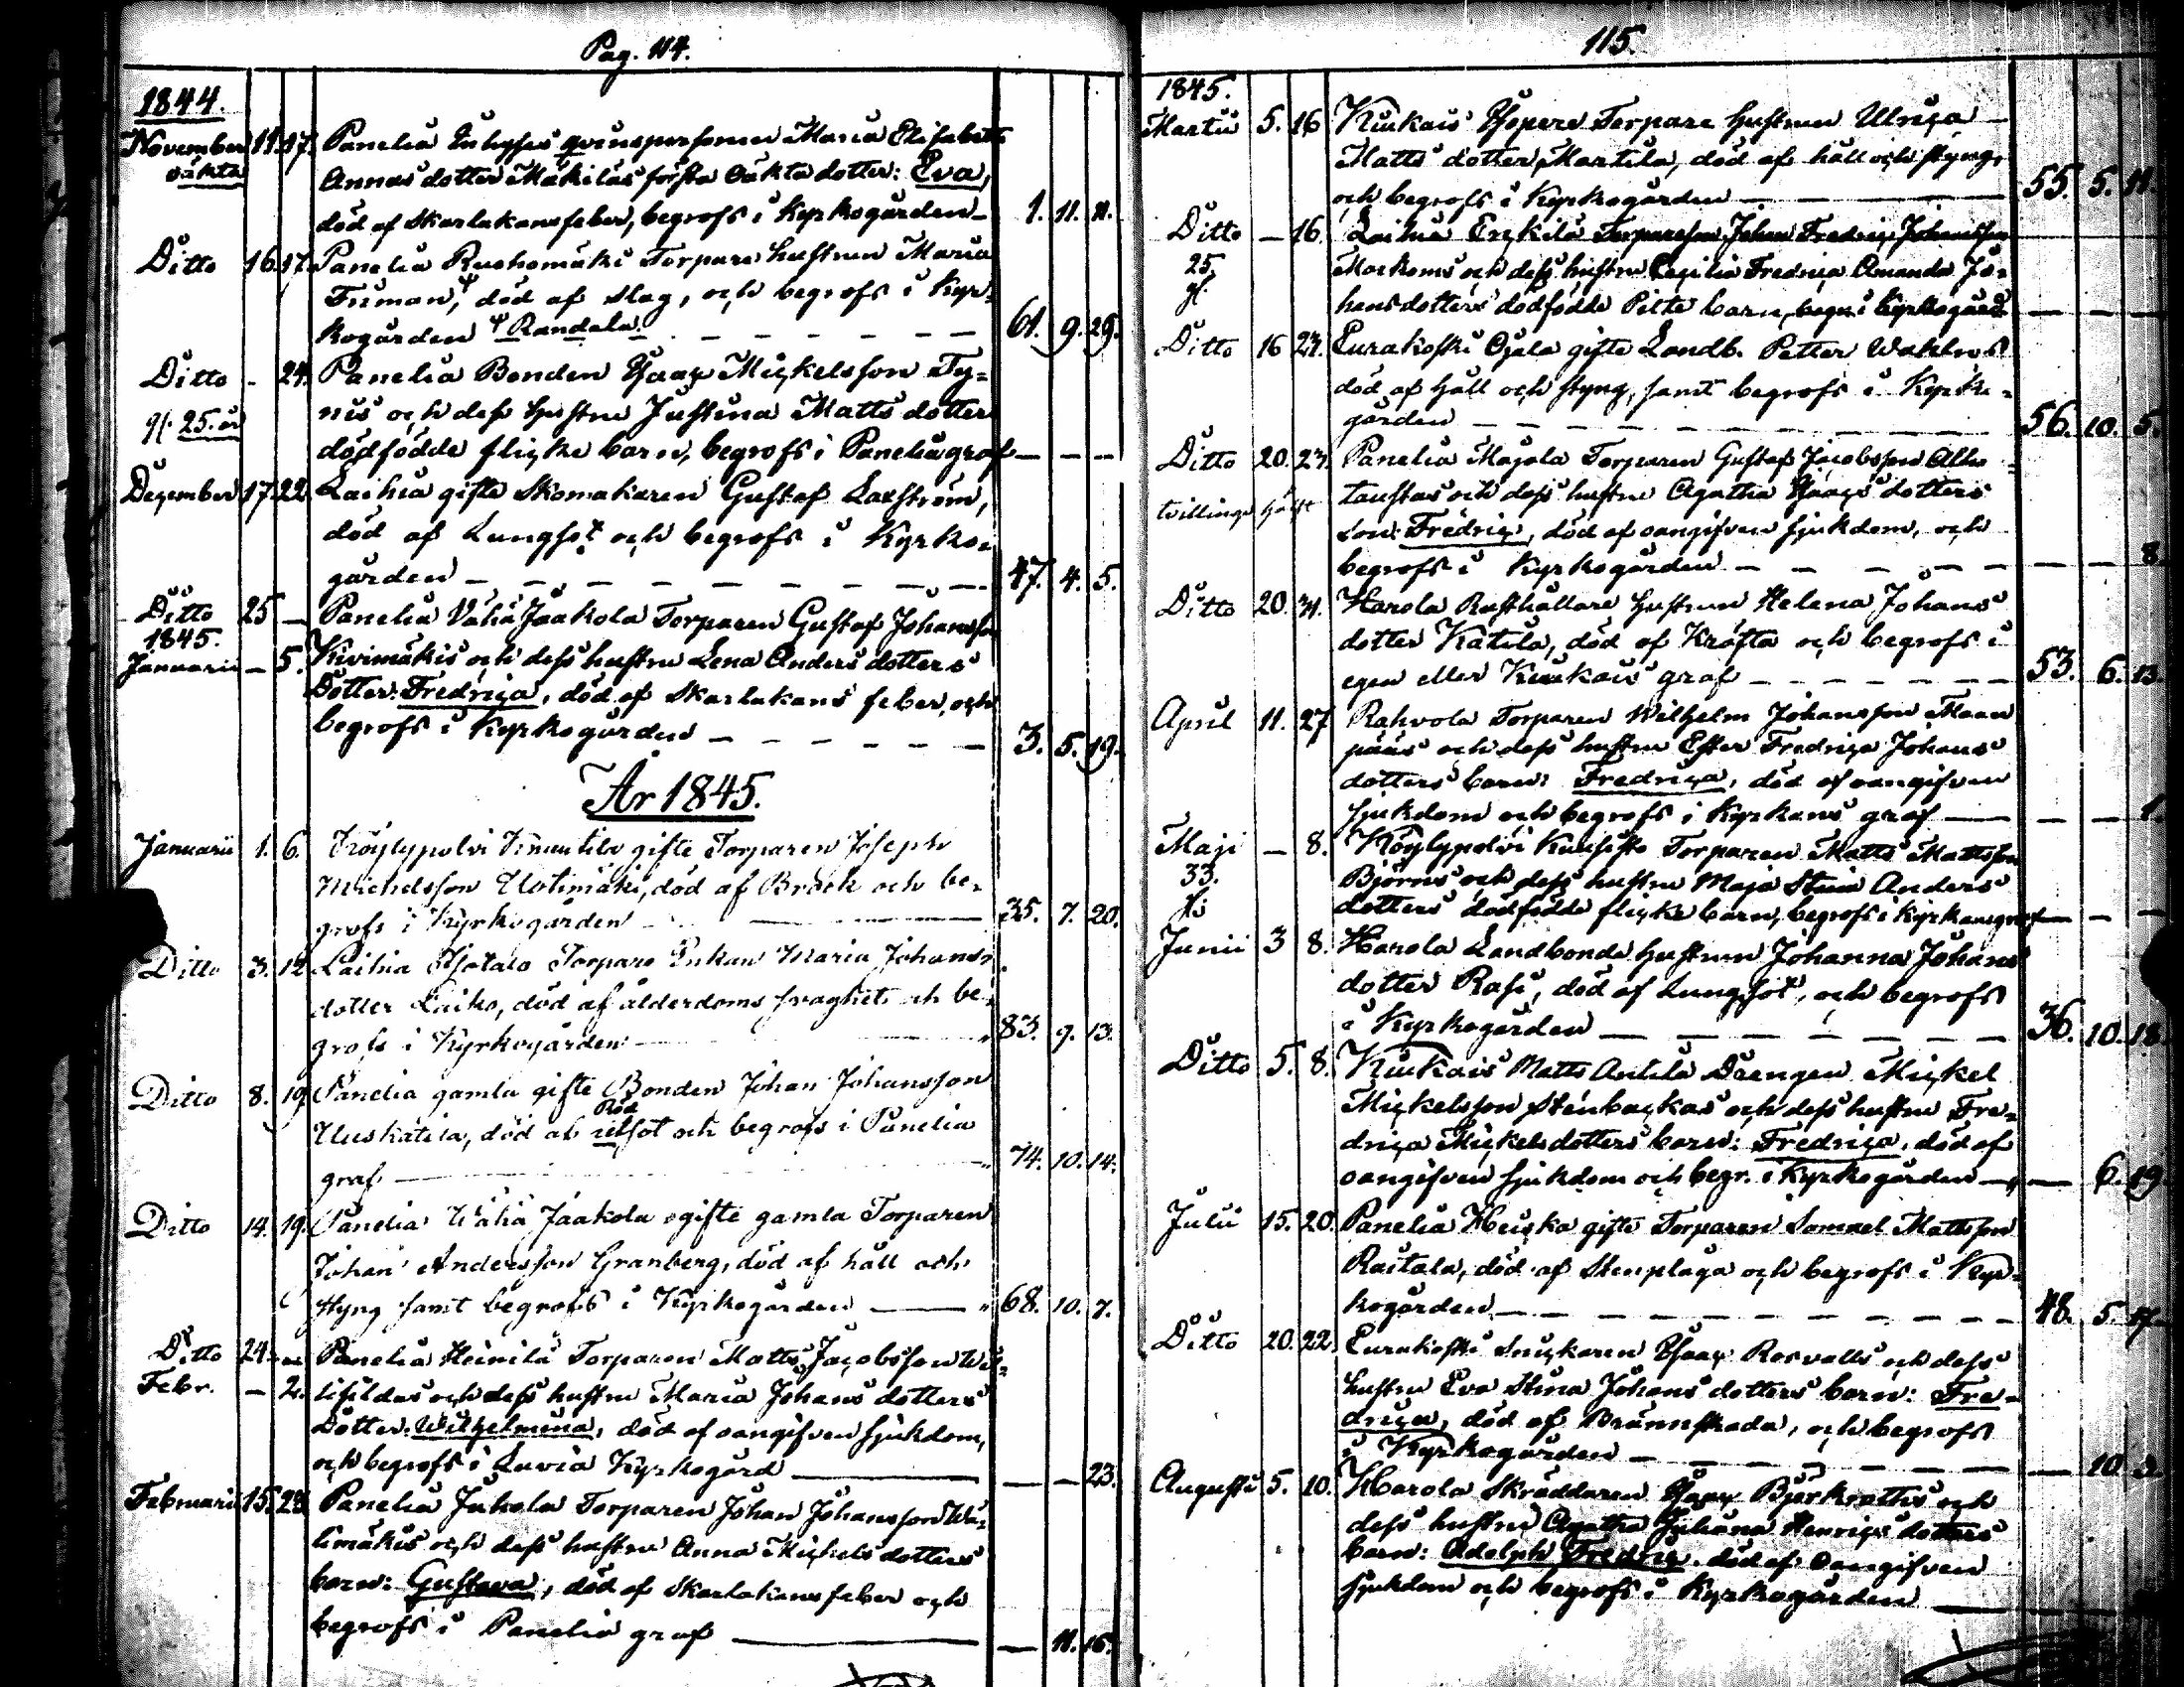 Pag. 114.
1844.
November 11. 17. Panelia Inhyses qvinspersonen Maria Elisabeth
oäkta Annas dotter Mäkiläs första Oäkta dotter: Eva,
död af Skarlakansfeber, begrofs i Kyrkogården 1. 11. 11.
Ditto 16. 17. Panelia Ruohomäki Torpare hustrun Maria
Friman, död af slag, och begrofs i Kyr-
kogården Randala. 61. 9. 29.
Ditto - 24. Panelia Bonden Isaac Mickelsson Ty-
gl. 25. år nis och dess hustru Justina Matts dotters
dödfödde flicke barn, begrofs i Panelia graf
December 17. 22. Laihia gifte Skomakaren Gustaf Laxström,
död af Lungsot och begrofs i Kyrko-
gården 47. 4. 5.
Ditto 25 - Panelia Vähä Jaakola Torparen Gustaf Johansson
1845.
Januarii - 5. Kivimäkis och dess hustru Lena Anders dotters
Dotter: Fredrica, död af Skarlakans feber, och
begrofs i Kyrkogården 3. 5. 19.
År 1845.
Januarii 1. 6. Köylypolvi gifte Torparen Joseph
Michelsson Uotimäki, död af Bråck och be-
grofs i Kyrkogården 35. 7. 20.
Ditto 3. 12. Laihia Torpare Enkan Maria Johans
dotter Laiko, död af ålderdoms svaghet och be-
grofs i Kyrkogården 83. 9. 13.
Ditto 8. 19. Panelia gamla gifte Bonden Johan Johansson
Röd
Uuskatila, död af sot och begrofs i Panelia
graf 74. 10. 14.
Ditto 14. 19. Panelia Wähä Jaakola gifte gamla Torparen
Johan Andersson Granberg, död af håll och
styng samt begrofs i Kyrkogården 68. 10. 7.
Ditto 24. Panelia Heinilä Torparen Matts Jacobsson
Febr. - 2. och dess hustru Maria Johans dotters
Dotter: Wilhelmina, död af oangifven sjukdom,
och begrofs i Luvia Kyrkogård 23.
Februarii 15. 23. Panelia Jukola Torparen Johan Johansson Wä-
limäkis och dess hustru Anna Mickels dotters
barn: Gustava, död af Skarlakansfeber och
begrofs i Panelia graf 11. 15.
115.
1845.
Martii 5. 16 Kiukais Torpare hustrun Ulrica
Matts dotter Martila, död af håll och styng,
och begrofs i Kyrkogården 55. 5. 11.
Ditto - 16. Laihia Erckilä Torparesson Johan Fredric Johansson
25. Morkoms och dess hustru Cecilia Fredrica Amanda Jo-
gl. hansdotters dödfödde Pilte barn, begr. i Kyrkogård
Ditto 16 24. Eurakoski Ojala gifte Landb. Petter Wahlros
död af håll och styng, samt begrofs i Kyrko-
gården 56. 10. 5.
Ditto 20. 24. Panelia Majala Torparen Gustaf Jacobsson
tvillings hälft och dess hustru Agatha Isaacs dotters
Son: Fredric, död af oangifven sjukdom, och
begrofs i Kyrkogården 8.
Ditto 20. 31. Harola Rusthållare hustrun Helena Johans
dotter Katila, död af Kräfta och begrofs i
egen eller Kiukais graf 53. 6. 13.
April 11. 27 Rahvola Torparen Wilhelm Johansson Maan
pääs och dess hustru Ester Fredrica Johans
dotters barn: Fredrica, död af oangifven
sjukdom och begrofs i Kyrkans graf 1.
Maji - 8. Köylypolvi Kuusisto Torparen Matts Mattsson
33. Björns och dess hustru Maja Stina Anders
dotters dödfödde flicke barn, begrofs i Kyrkans graf
Junii 3 8. Harola Landbonde hustrun Johanna Johans
dotter Rasi, död af Lungsot, och begrofs
i Kyrkogården 36. 10. 18.
Ditto 5. 8. Kiukais Matts Antila Drengen Mickel
Mickelsson Stenbackas och dess hustru Fre-
drica Mickelsdotters barn: Fredrica, död af
oangifven sjukdom och begr. i Kyrkogården 6. 19
Julii 15. 20. Panelia Heiska gifte Torparen Samuel Mattsson
Raitala, död af Stenplåga och begrofs i Kyr-
kogården 48. 5. 17.
Ditto 20. 22 Eurakoski Snickaren Isaac Rosvalls och dess
hustru Eva Stina Johans dotters barn: Fre-
drica, död af Brännskada, och begrofs
i Kyrkogården 10
Augusti 5. 10. Harola Skräddaren Isaac Björkroths och
dess hustru Agatha Juliana Henrics dotters
barn: Adolph Fredric, död af oangifven
sjukdom och begrofs i Kyrkogården